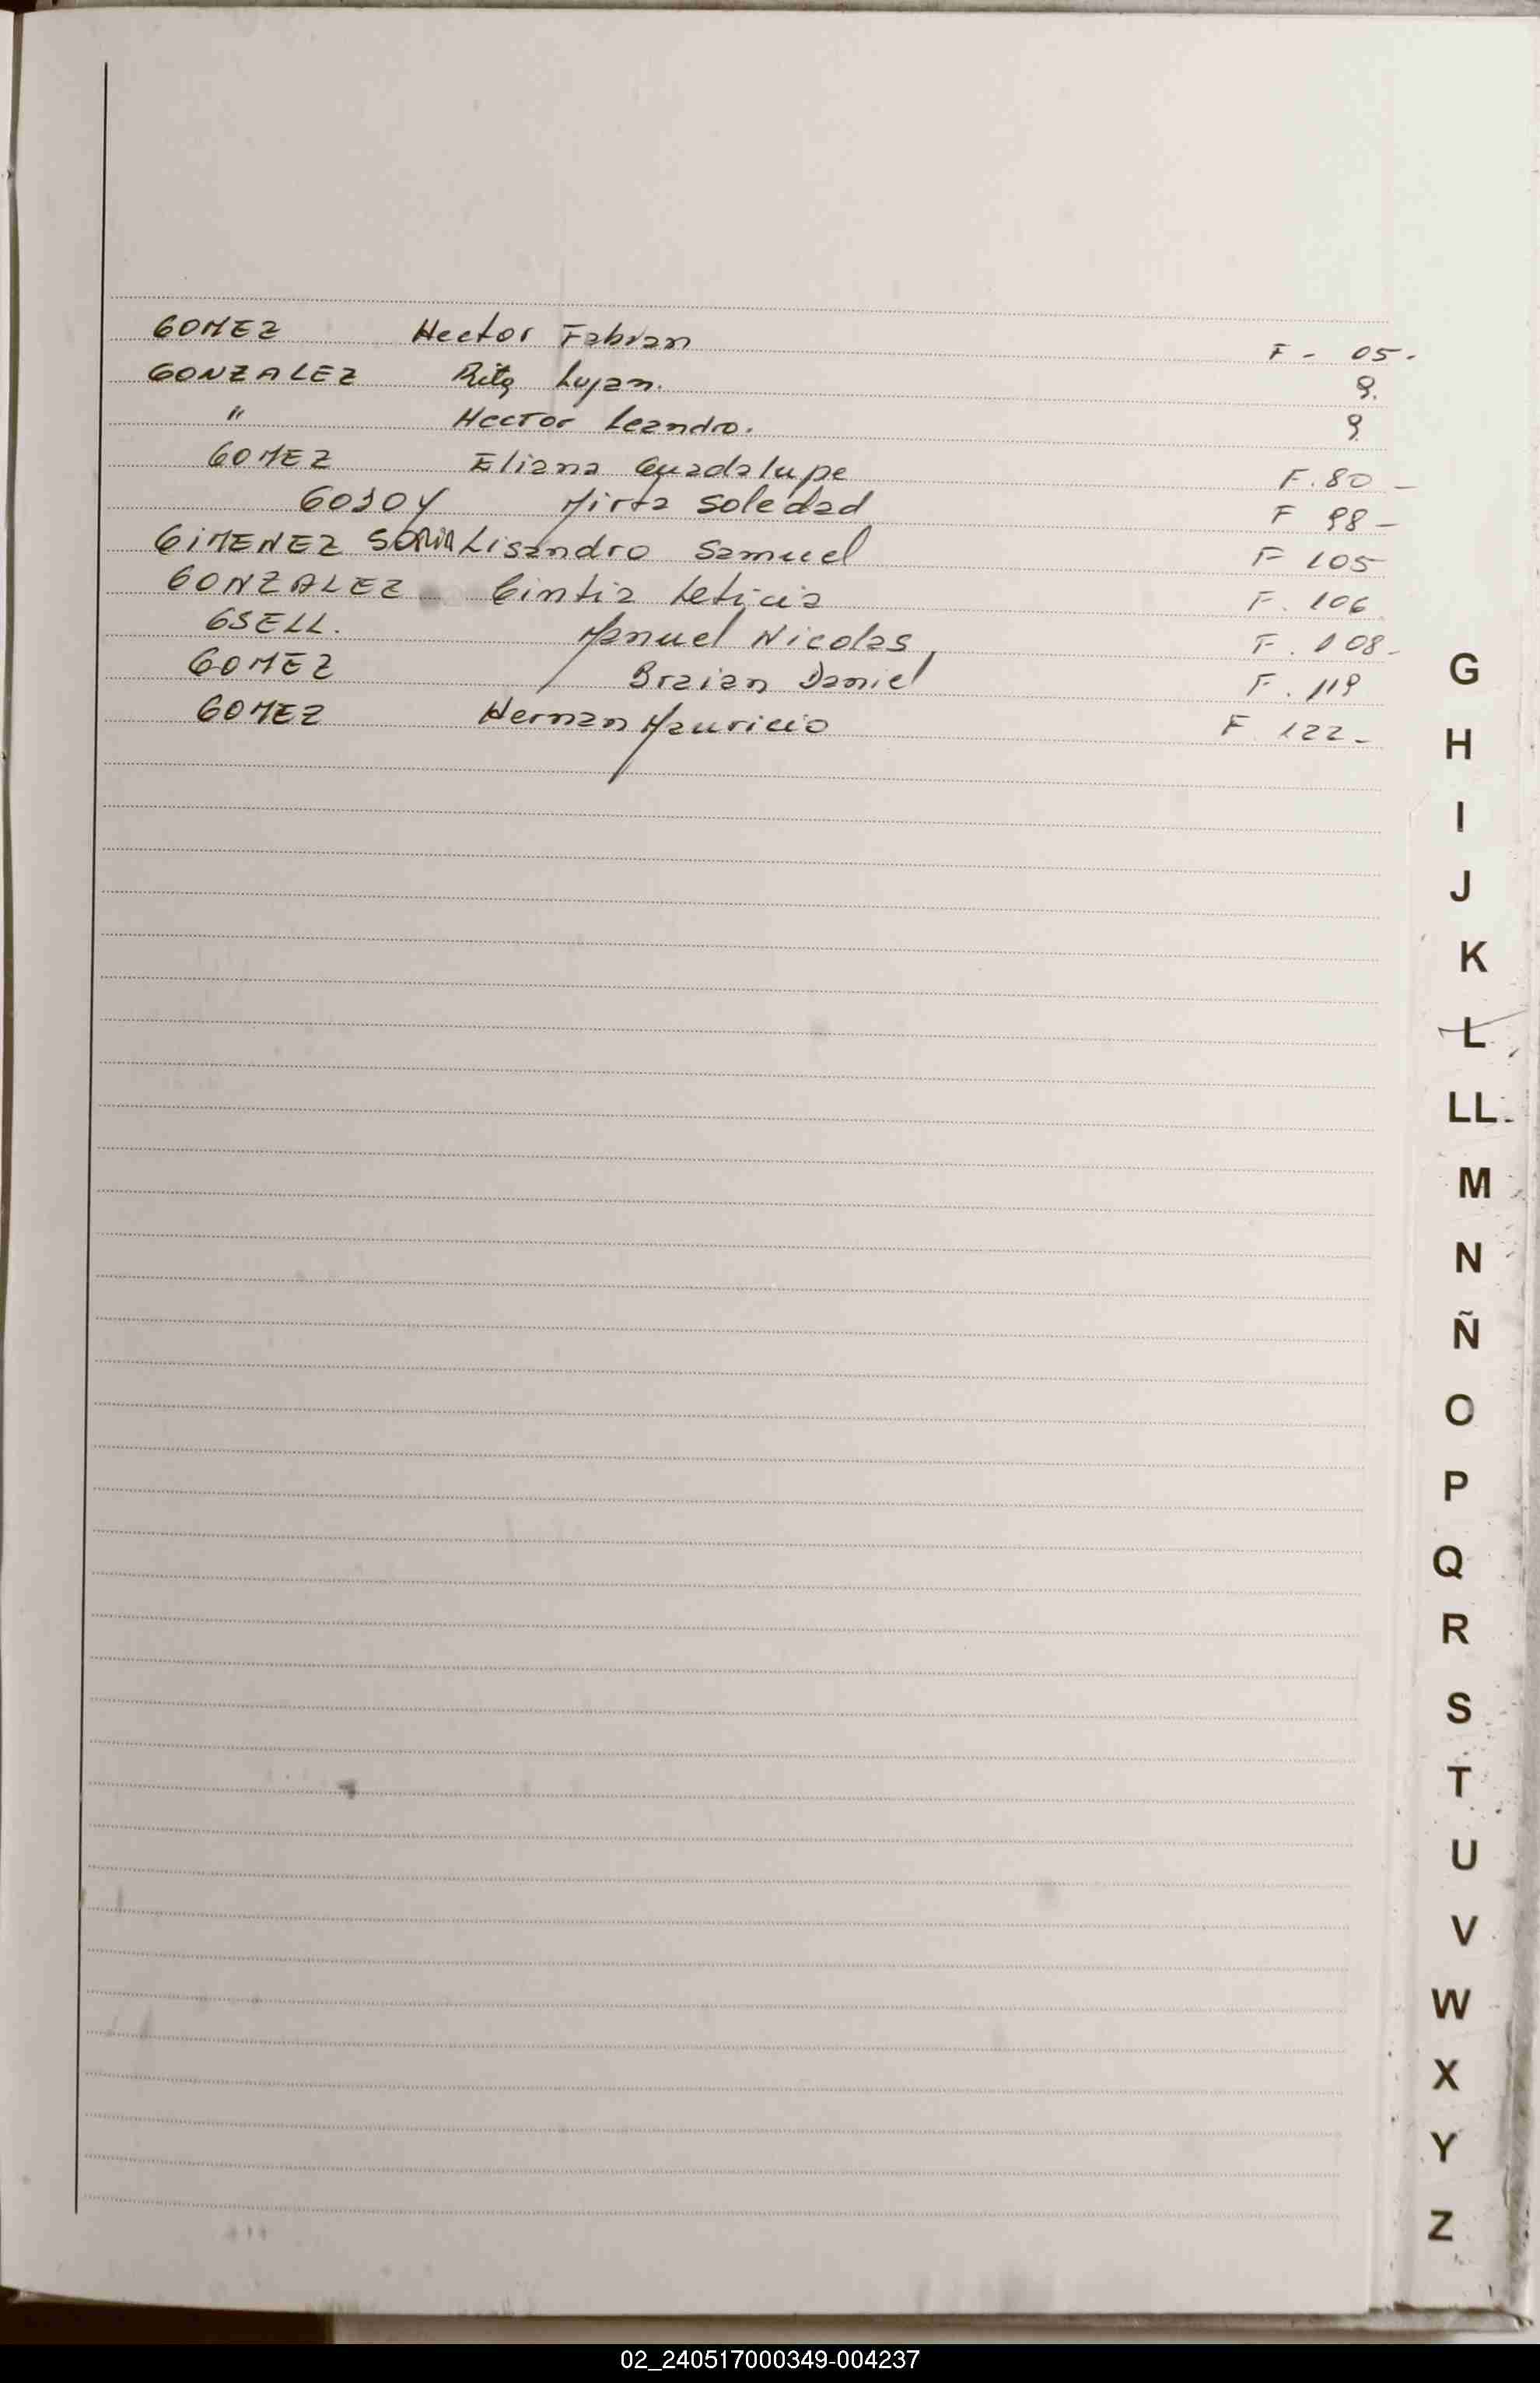 GOMEZ Hector Fabian F - 05 -
GONZALEZ Rita Lujan. 9.
" Hector Leandro. 9.
GOMEZ Eliana Guadalupe F. 80 -
GODOY Mirta Soledad F 98 -
GiMENEZ SORIA Lisandro Samuel F 105
GONZALEZ Cintia Leticia F. 106
GSELL. Manuel Nicolas F. 108 -
GOMEZ Braian Daniel F. 119
GOMEZ Hernan Mauricio F 122 -
G
H
I
J
K
L
LL
M
N
Ñ
O
P
Q
R
S
T
U
V
W
X
Y
Z
02_240517000349-004237